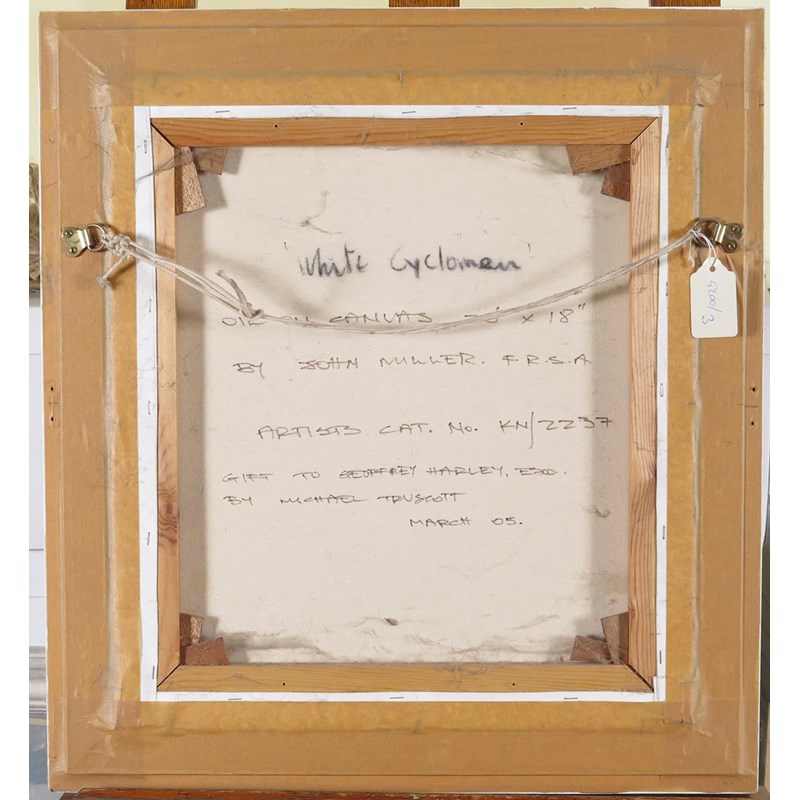 'White Cyclomen'
OIL ON CANVAS x 18"
BY JOHN MILLER. F.R.S.A
ARTISTS CAT. No. KN/2237
GIFT TO GEOFFREY HARLEY, ESQ.
BY MICHAEL TRUSCOTT
MARCH 05.
9200/3